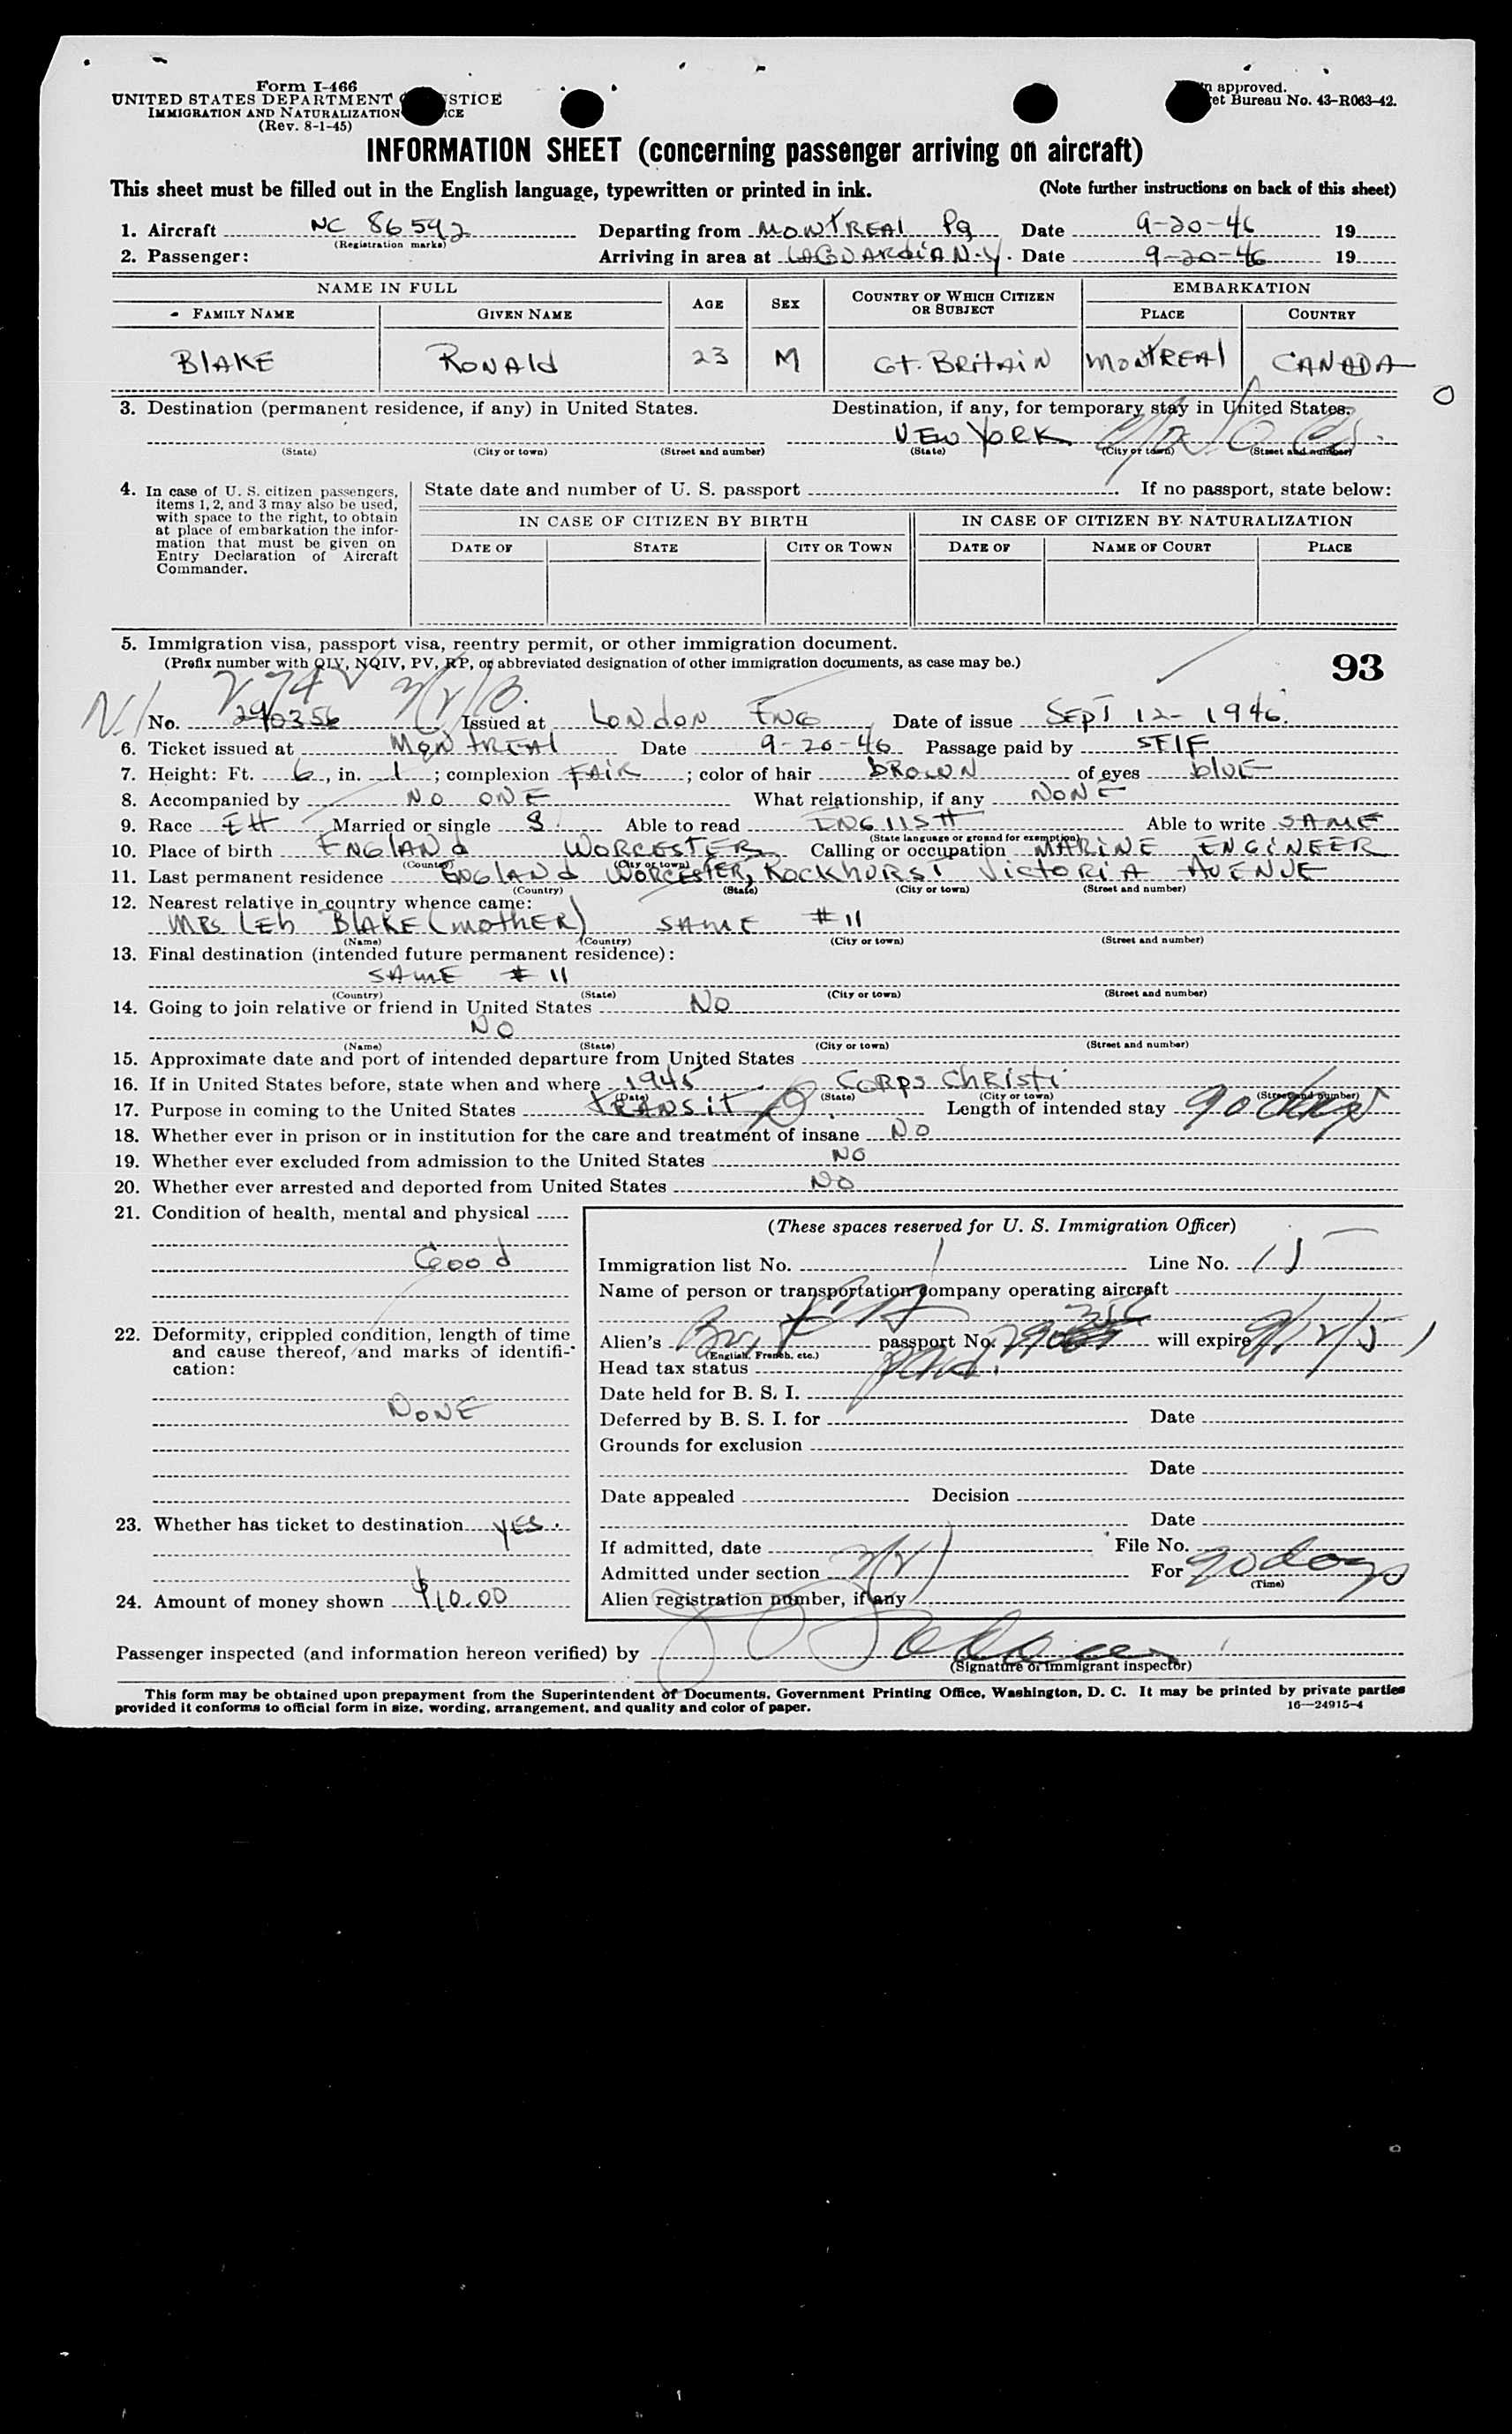 Form I-466
UNITED STATES DEPARTMENT STICE
IMMIGRATION AND NATURALIZATION ICE
(Rev. 8-1-45)
n approved.
et Bureau No. 43-R063-42.
INFORMATION SHEET (concerning passenger arriving on aircraft)
This sheet must be filled out in the English language, typewritten or printed in ink. (Note further instructions on back of this sheet)
1. Aircraft NC 86592 Departing from MONTREAL PQ Date 9-20-46 19
(Registration marks)
2. Passenger: Arriving in area at LAGUARdiA N.Y. Date 9-20-46 19
NAME IN FULL AGE SEX COUNTRY OF WHICH CITIZEN OR SUBJECT EMBARKATION
FAMILY NAME GIVEN NAME PLACE COUNTRY
BLAKE RONAld 23 M Gt. BRitAiN MONTREAl CANADA
3. Destination (permanent residence, if any) in United States. Destination, if any, for temporary stay in United States.
NEW YORK
(State) (City or town) (Street and number) (State) (City or town) (Street and number)
4. In case of U. S. citizen passengers, items 1, 2, and 3 may also be used, with space to the right, to obtain at place of embarkation the information that must be given on Entry Declaration of Aircraft Commander.
State date and number of U. S. passport If no passport, state below:
IN CASE OF CITIZEN BY BIRTH IN CASE OF CITIZEN BY NATURALIZATION
DATE OF STATE CITY OR TOWN DATE OF NAME OF COURT PLACE
5. Immigration visa, passport visa, reentry permit, or other immigration document.
(Prefix number with QIV, NQIV, PV, RP, or abbreviated designation of other immigration documents, as case may be.)
93
No. 290356 Issued at LONdON ENG Date of issue SEPT 12- 1946.
6. Ticket issued at MONtREAl Date 9-20-46 Passage paid by SElF
7. Height: Ft. 6, in. 1; complexion FAiR; color of hair bROWN of eyes blUE
8. Accompanied by NO ONE What relationship, if any NONE
9. Race Married or single S. Able to read ENGliSH Able to write SAME
(State language or ground for exemption)
10. Place of birth ENGlANd WORCESTER Calling or occupation MARiNE ENGiNEER
(Country) (City or town)
11. Last permanent residence ENGlANd WORCESTER, ROCKHURST VictORiA AVENUE
(Country) (State) (City or town) (Street and number)
12. Nearest relative in country whence came:
MRS BLAKE (MOtHER) SAME # 11
(Name) (Country) (City or town) (Street and number)
13. Final destination (intended future permanent residence):
SAME # 11
(Country) (State) (City or town) (Street and number)
14. Going to join relative or friend in United States NO
NO
(Name) (State) (City or town) (Street and number)
15. Approximate date and port of intended departure from United States
16. If in United States before, state when and where 1945 CORPS ChRiSti
(Date) (State) (City or town) (Street and number)
17. Purpose in coming to the United States tRANSiT Length of intended stay 90 days
18. Whether ever in prison or in institution for the care and treatment of insane NO
19. Whether ever excluded from admission to the United States NO
20. Whether ever arrested and deported from United States NO
21. Condition of health, mental and physical
Good
22. Deformity, crippled condition, length of time and cause thereof, and marks of identification:
NONE
23. Whether has ticket to destination YES.
24. Amount of money shown $10.00
(These spaces reserved for U. S. Immigration Officer)
Immigration list No. 1 Line No. 15
Name of person or transportation company operating aircraft
Alien's Brit passport No. will expire
(English, French, etc.)
Head tax status
Date held for B. S. I.
Deferred by B. S. I. for Date
Grounds for exclusion
Date
Date appealed Decision
Date
If admitted, date File No.
Admitted under section For 90 days
(Time)
Alien registration number, if any
Passenger inspected (and information hereon verified) by
(Signature of immigrant inspector)
This form may be obtained upon prepayment from the Superintendent of Documents, Government Printing Office, Washington, D. C. It may be printed by private parties
provided it conforms to official form in size, wording, arrangement, and quality and color of paper. 16—24915-4